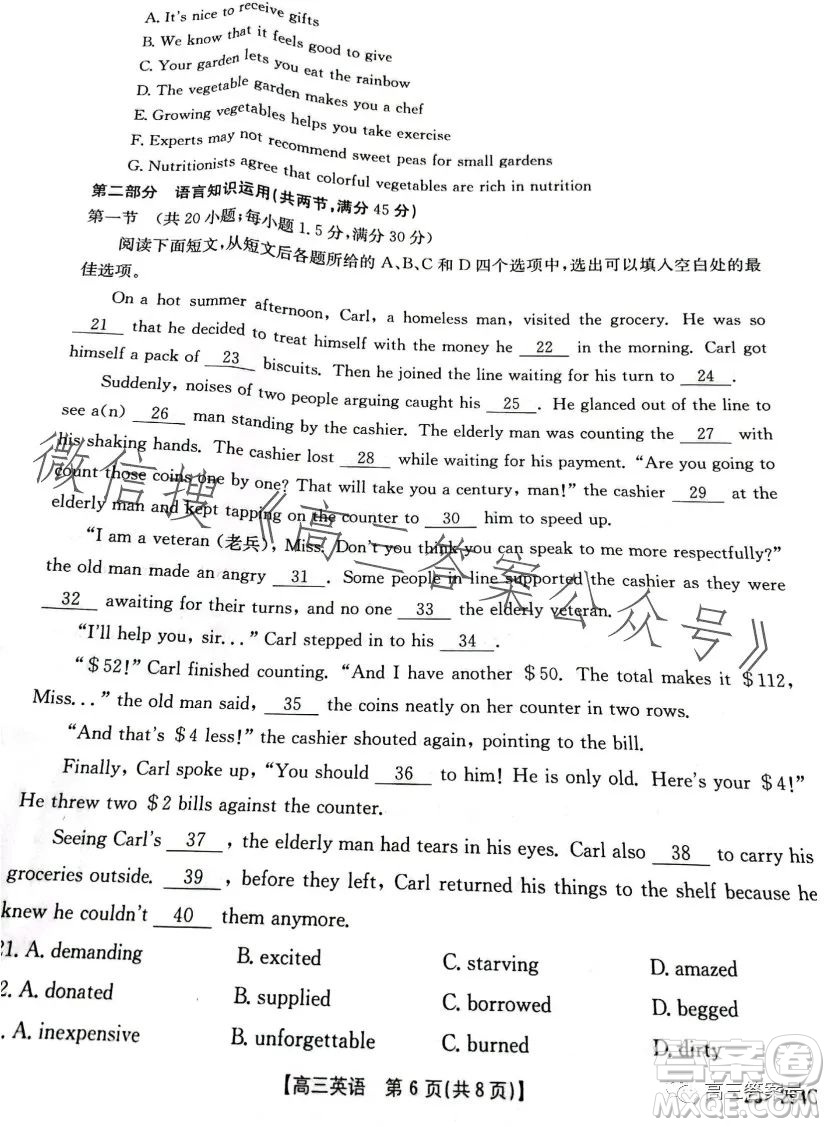 A. It's nice to receive gifts
B. We know that it feels good to give
C. Your garden lets you eat the rainbow
D. The vegetable garden makes you a chef
E. Growing vegetables helps you take exercise
F. Experts may not recommend sweet peas for small gardens
G. Nutritionists agree that colorful vegetables are rich in nutrition
第二部分 语言知识运用(共两节,满分 45 分)
第一节 (共 20 小题;每小题 1.5 分,满分 30 分)
阅读下面短文,从短文后各题所给的 A、B、C 和 D 四个选项中,选出可以填入空白处的最
佳选项。
On a hot summer afternoon, Carl, a homeless man, visited the grocery. He was so
21 that he decided to treat himself with the money he 22 in the morning. Carl got
himself a pack of 23 biscuits. Then he joined the line waiting for his turn to 24 .
Suddenly, noises of two people arguing caught his 25 . He glanced out of the line to
see a(n) 26 man standing by the cashier. The elderly man was counting the 27 with
his shaking hands. The cashier lost 28 while waiting for his payment. “Are you going to
count those coins one by one? That will take you a century, man!” the cashier 29 at the
elderly man and kept tapping on the counter to 30 him to speed up.
“I am a veteran (老兵), Miss. Don't you think you can speak to me more respectfully?”
the old man made an angry 31 . Some people in line supported the cashier as they were
32 awaiting for their turns, and no one 33 the elderly veteran.
“I'll help you, sir...” Carl stepped in to his 34 .
“$52!” Carl finished counting. “And I have another $50. The total makes it $112,
Miss...” the old man said, 35 the coins neatly on her counter in two rows.
“And that's $4 less!” the cashier shouted again, pointing to the bill.
Finally, Carl spoke up, “You should 36 to him! He is only old. Here's your $4!”
He threw two $2 bills against the counter.
Seeing Carl's 37 , the elderly man had tears in his eyes. Carl also 38 to carry his
groceries outside. 39 , before they left, Carl returned his things to the shelf because he
knew he couldn't 40 them anymore.
21. A. demanding B. excited C. starving D. amazed
2. A. donated B. supplied C. borrowed D. begged
. A. inexpensive B. unforgettable C. burned D. dirty
【高三英语 第 6 页(共 8 页)】
微信搜《高三答案公众号》
答案圈
MXQE.COM
高三答案